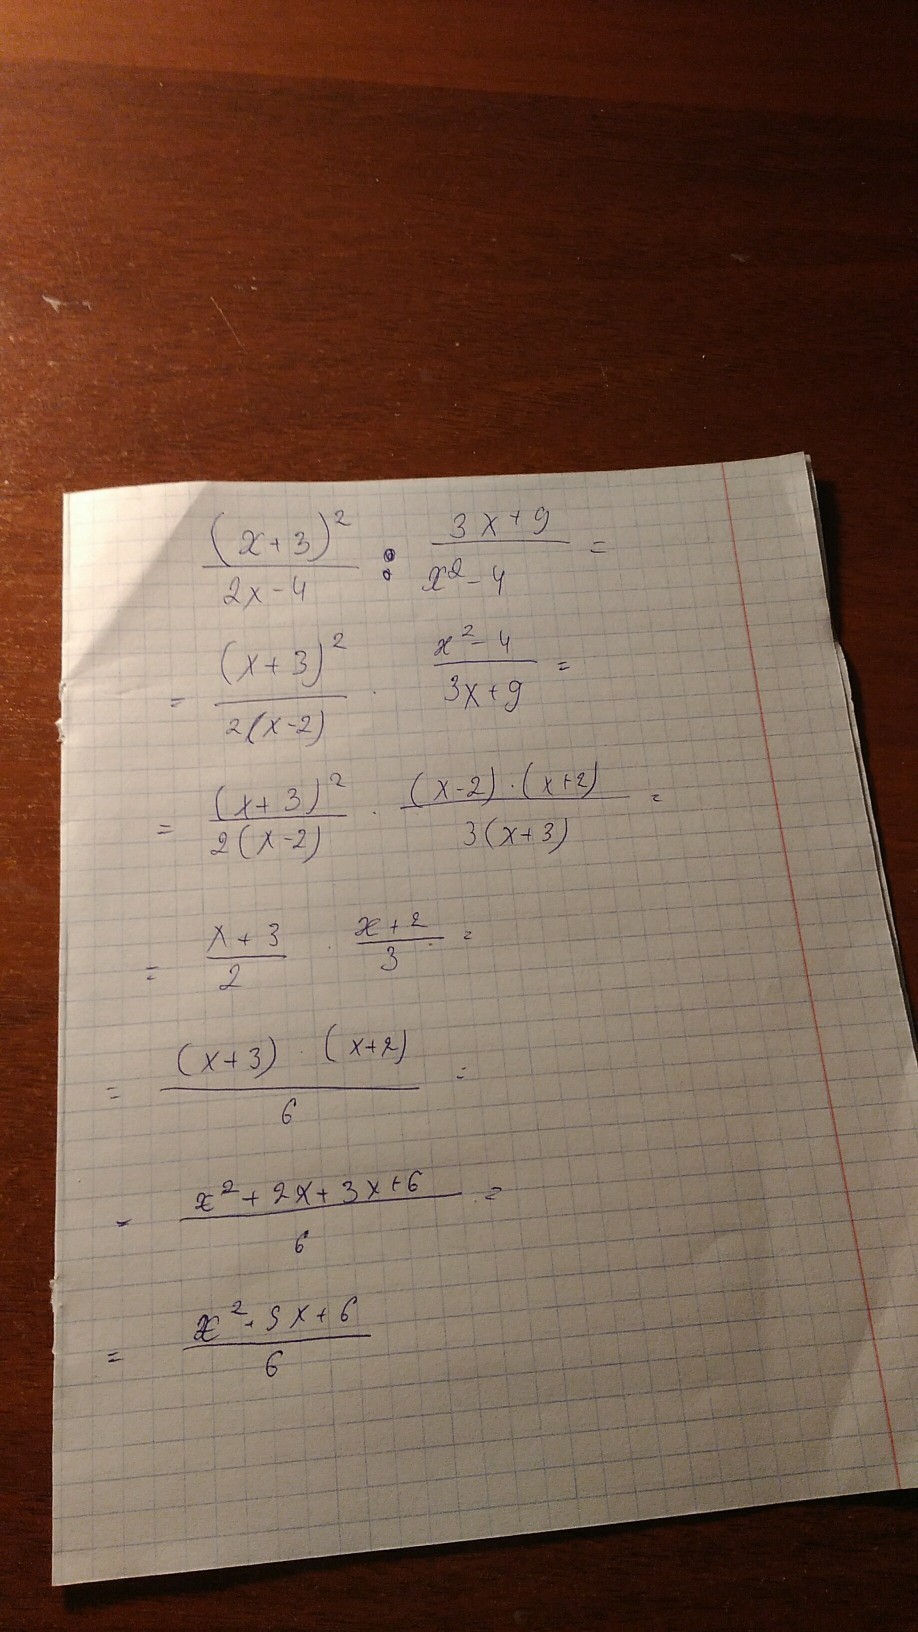 (x+3)²/(2x-4) : (3x+9)/(x²-4) =
= (x+3)²/(2(x-2)) · (x²-4)/(3x+9) =
= (x+3)²/(2(x-2)) · ((x-2)·(x+2))/(3(x+3)) =
= (x+3)/2 · (x+2)/3 =
= ((x+3)·(x+2))/6 =
= (x²+2x+3x+6)/6 =
= (x²+5x+6)/6